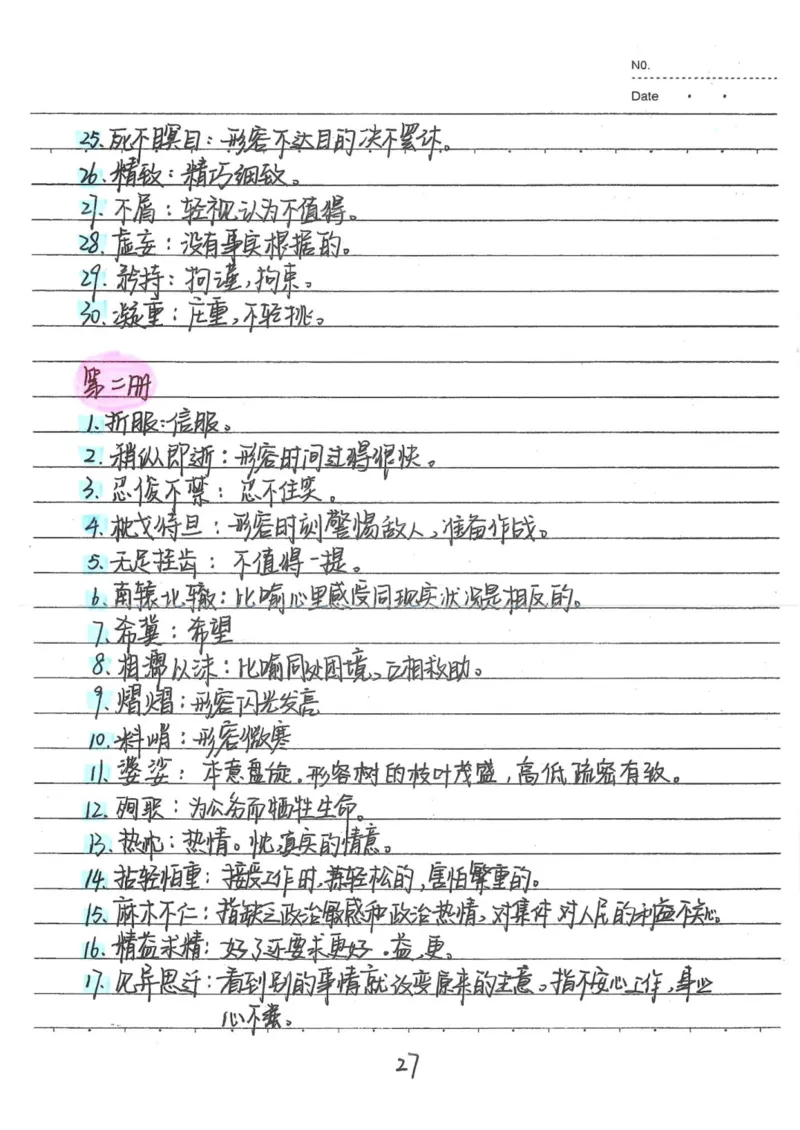 NO.
Date
25. 死不瞑目：形容不达目的决不罢休。
26. 精致：精巧细致。
27. 不屑：轻视，认为不值得。
28. 虚妄：没有事实根据的。
29. 矜持：拘谨，拘束。
30. 凝重：庄重，不轻挑。
第二册
1. 折服：信服。
2. 稍纵即逝：形容时间过得很快。
3. 忍俊不禁：忍不住笑。
4. 枕戈待旦：形容时刻警惕敌人，准备作战。
5. 无足挂齿：不值得一提。
6. 南辕北辙：比喻心里感受同现实状况是相反的。
7. 希冀：希望
8. 相濡以沫：比喻同处困境，互相救助。
9. 熠熠：形容闪光发亮
10. 料峭：形容微寒
11. 婆娑：本意盘旋。形容树的枝叶茂盛，高低疏密有致。
12. 殉职：为公务而牺牲生命。
13. 热忱：热情。忱，真实的情意。
14. 拈轻怕重：接受工作时，拣轻松的，害怕繁重的。
15. 麻木不仁：指缺乏政治敏感和政治热情，对集体对人民的利益不关心。
16. 精益求精：好了还要求更好。益，更。
17. 见异思迁：看到别的事情就改变原来的主意。指不安心工作，事业
心不强。
27